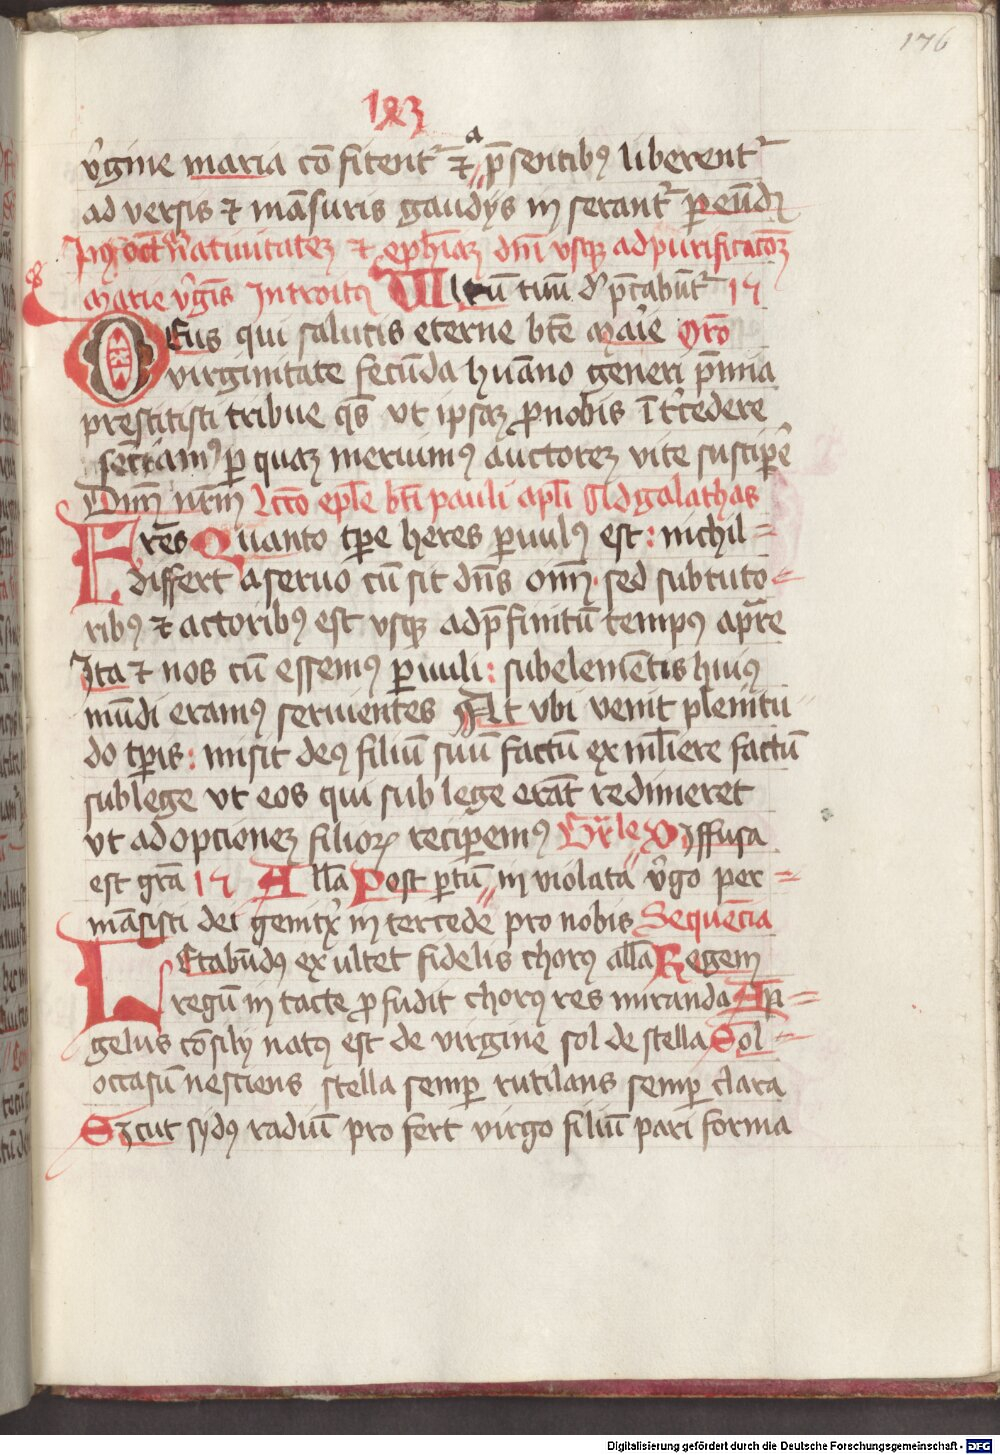 176
lxȝ
v̓gine maria cō fitent᷑ ⁊ a p̄sentibꝰ liberent᷑
ad versis ⁊ māsuris gaudijs in serant᷑ ꝑ eūdꝫ
natiuitateꝫ ⁊ ephīaꝫ dn̄i vsqꝫ ad purificatōeꝫ
marie v̓gīs Introitꝰ Ultū tuū d̓ p̄cabūt᷑
Deus qui salutis eterne btē maīe Orō
virginitate fecūda hūano generi p̄mia
prestitisti tribue qs̄ vt ipsaꝫ ꝓ nobis īt̓cedere
sēciamꝰ ꝑ quaꝫ meruimꝰ auctoreꝫ vite suscipē
Dn̄m nr̄m Lcc̄o epl̄e bt̄i pauli apl̄i Ad galathas
Frēs Quanto tꝑe heres ꝑuulꝰ est : nichil=
differt a seruo cū sit dn̄s om̄ sed sub tuto=
ribꝰ ⁊ actoribꝰ est vsqꝫ ad p̄finitū tempꝰ a pr̄e
Ita ⁊ nos cū essemꝰ ꝑuuli : sub elemētis huiꝰ
mūdi eramꝰ seruientes At vbi venit plenitu
do tꝑis : misit deꝰ filiū suū factū ex ml̄iere factū
sub lege vt eos qui sub lege erāt redimeret
vt ad opcioneꝫ filioꝝ reciperemꝰ Gr̄le Diffusa
est gr̄a All̄a Post ꝑtū in violata v̓go per=
māsisti dei genit̓x in tercede pro nobis Sequēcia
Letabūdꝰ ex ultet fidelis chorꝰ all̄a Regem
regū in tacte ꝓ fudit chorꝰ res miranda An=
gelus cōsilij natꝰ est de virgine sol de stella Sol=
occasū nesciens stella semꝑ rutilans semꝑ clara
Sicut sydꝰ radiū pro fert virgo filiū pari forma
Digitalisierung gefördert durch die Deutsche Forschungsgemeinschaft - DFG